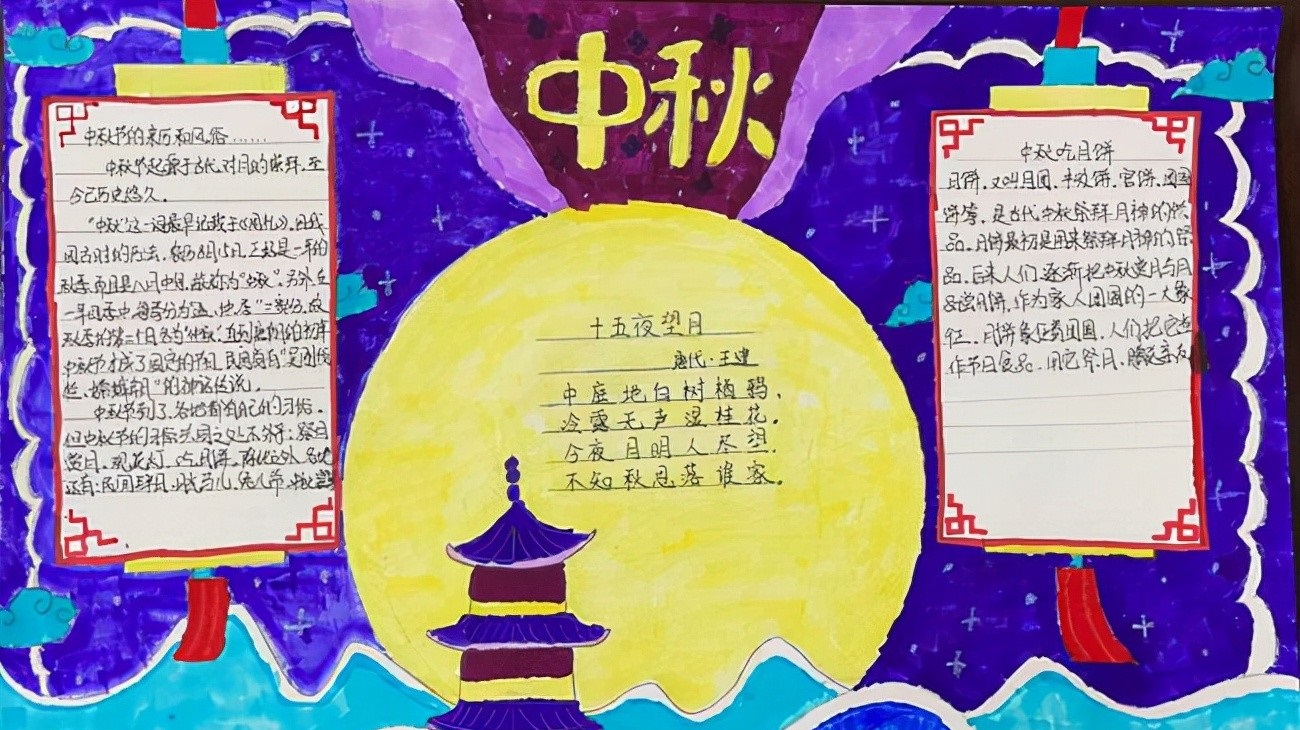 中秋
中秋节的来历和风俗……
中秋节起源于古代对月的崇拜,至
今已历史悠久。
"中秋"这一词最早记载于《周礼》。由我
国古时的历法,农历8月15日,正好是一年的
秋季而且是八月中旬,故称为"中秋"。另外在
一年四季中每季分为孟、仲、季三部分,故
秋季的第二个月名为"仲秋",直到唐朝的初年
中秋节才成了固定的节日,民间更有"吴刚伐
桂、嫦娥奔月"的神话传说。
中秋节到了,各地都有自己的习俗。
但中秋节的习俗共同之处不外乎:祭月
赏月、观花灯、吃月饼。除此之外,各地
还有:民间拜月
十五夜望月
唐代·王建
中庭地白树栖鸦,
冷露无声湿桂花。
今夜月明人尽望,
不知秋思落谁家。
中秋吃月饼
月饼,又叫月团、丰收饼、宫饼、团圆
饼等,是古代中秋祭拜月神的供
品。月饼最初是用来祭拜月神的供
品,后来人们逐渐把中秋赏月与月
品尝月饼,作为家人团圆的一大象
征。月饼象征着团圆,人们把它当
作节日食品,用它祭月、赠送亲友